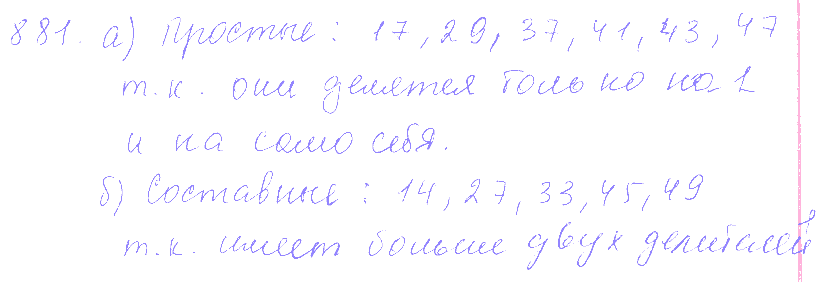 881. а) Простые: 17, 29, 37, 41, 43, 47
т.к. они делятся только на 1
и на само себя.
б) Составные: 14, 27, 33, 45, 49
т.к. имеет больше двух делителей